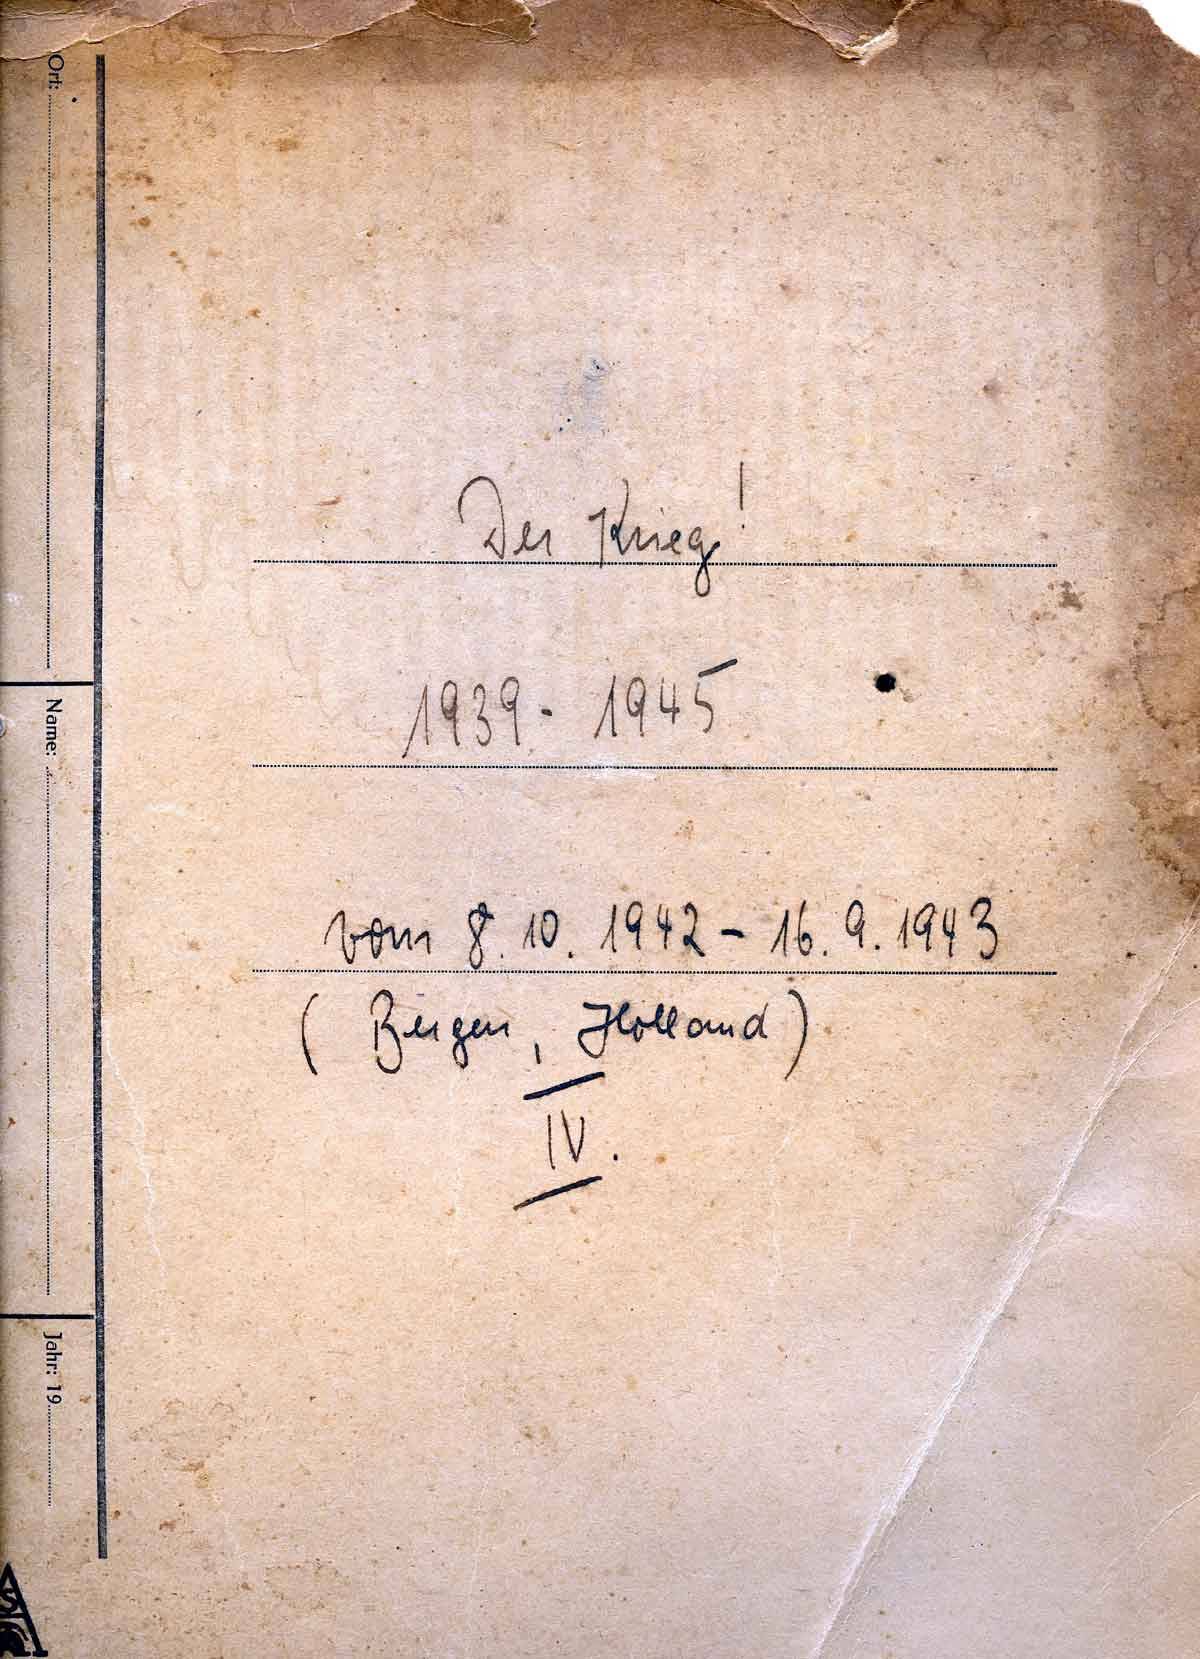 Ort:
Name:
Jahr: 19
Der Krieg!
1939 - 1945
vom 8. 10. 1942 - 16. 9. 1943
( Bergen, Holland )
IV.